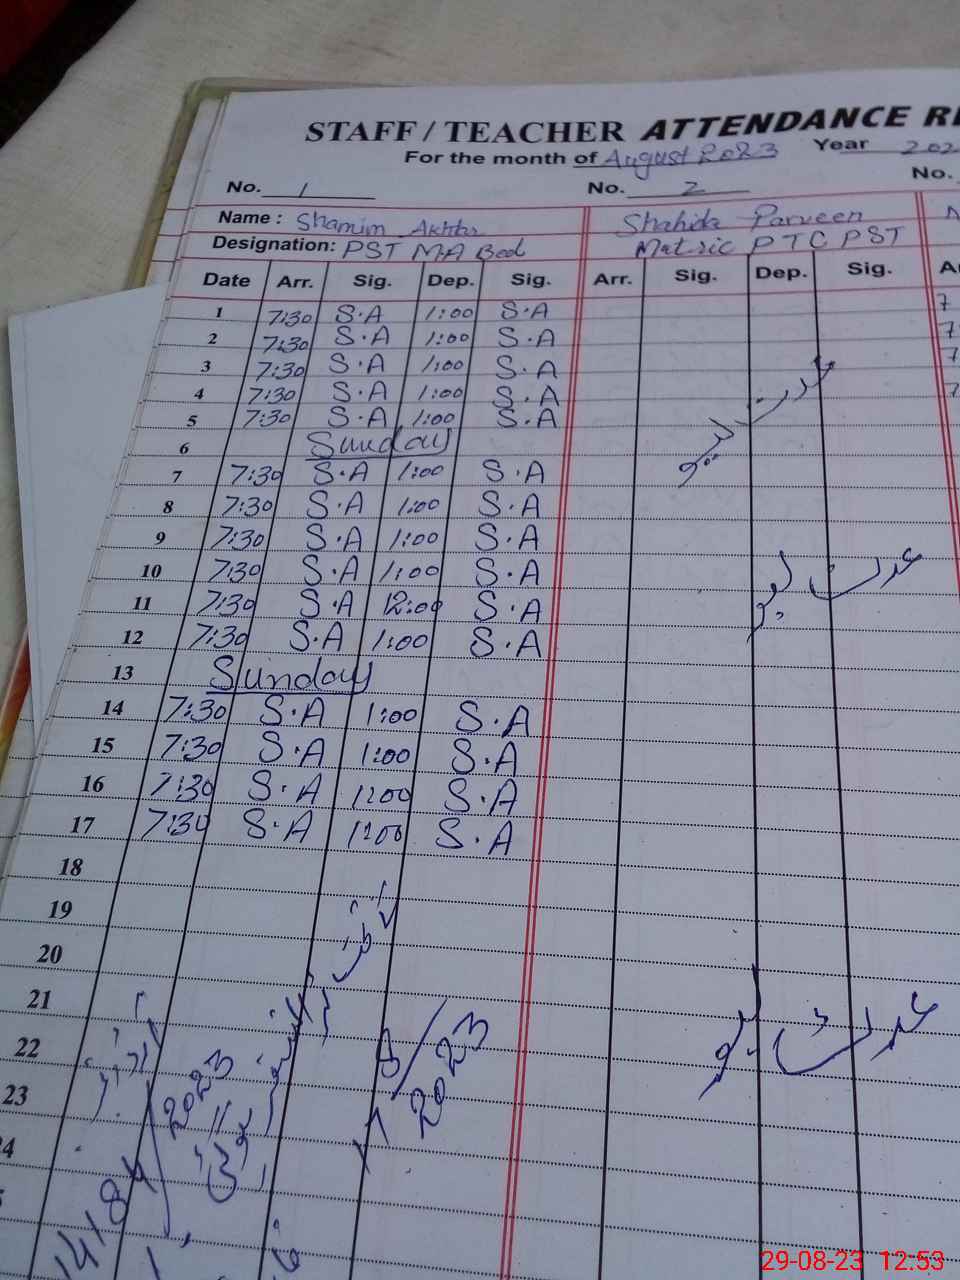 STAFF / TEACHER ATTENDANCE RE
For the month of August 2023 Year 202
No. 1 No. 2 No.
Name : Shamim Akhtar Shahida Parveen
Designation: PST M.A Bed Matric PTC PST
Date Arr. Sig. Dep. Sig. Arr. Sig. Dep. Sig.
1 7:30 S.A 1:00 S.A 7
2 7:30 S.A 1:00 S.A 7
3 7:30 S.A 1:00 S.A 7
4 7:30 S.A 1:00 S.A 7
5 7:30 S.A 1:00 S.A
عدت لیو
6 Sunday
7 7:30 S.A 1:00 S.A
8 7:30 S.A 1:00 S.A
9 7:30 S.A 1:00 S.A
10 7:30 S.A 1:00 S.A
عدت لیو
11 7:30 S.A 12:00 S.A
12 7:30 S.A 1:00 S.A
13 Sunday
14 7:30 S.A 1:00 S.A
15 7:30 S.A 1:00 S.A
16 7:30 S.A 1:00 S.A
17 7:30 S.A 1:00 S.A
18
19
20
21
22
عدت لیو
23
17/8/2023
2023
29-08-23 12:53